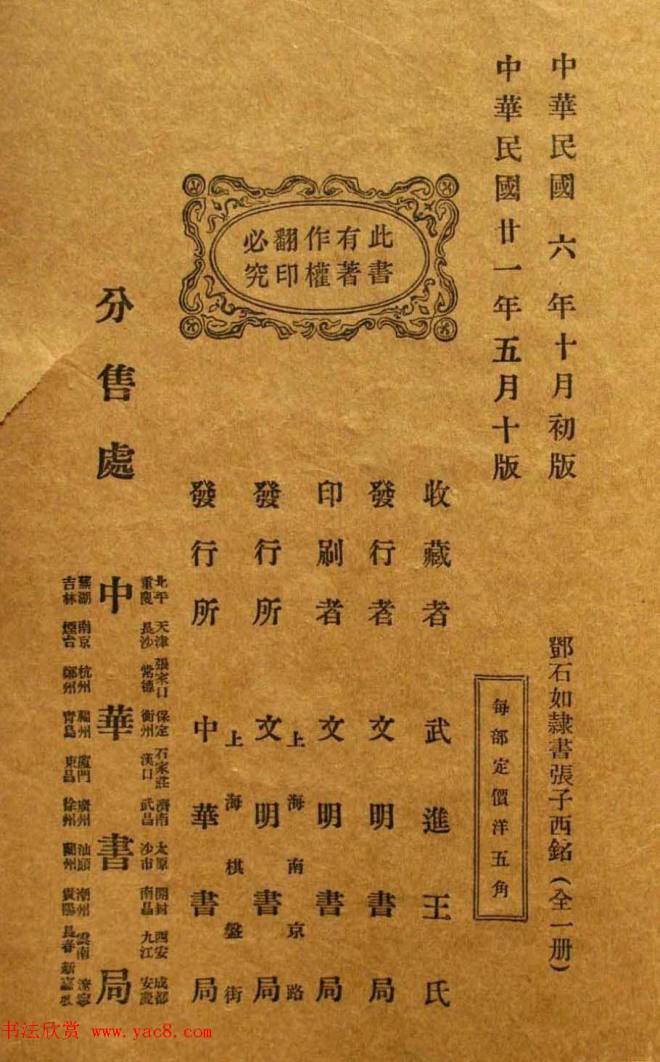 中華民國六年十月初版
中華民國廿一年五月十版
鄧石如隸書張子西銘(全一册)
每部定價洋五角
此書有著作權翻印必究
收藏者 武進王氏
發行者 文明書局
印刷者 文明書局
上海南京路
發行所 文明書局
上海棋盤街
發行所 中華書局
分售處
北平 天津 張家口 保定 石家莊 濟南 太原 開封 西安 成都
重慶 長沙 常德 衡州 漢口 武昌 沙市 南昌 九江 安慶
中華書局
蕪湖 南京 杭州 福州 廈門 廣州 汕頭 潮州 雲南 遼寧
吉林 煙台 鄭州 青島 東昌 徐州 蘭州 貴陽 長春 新嘉坡
书法欣赏 www.yac8.com